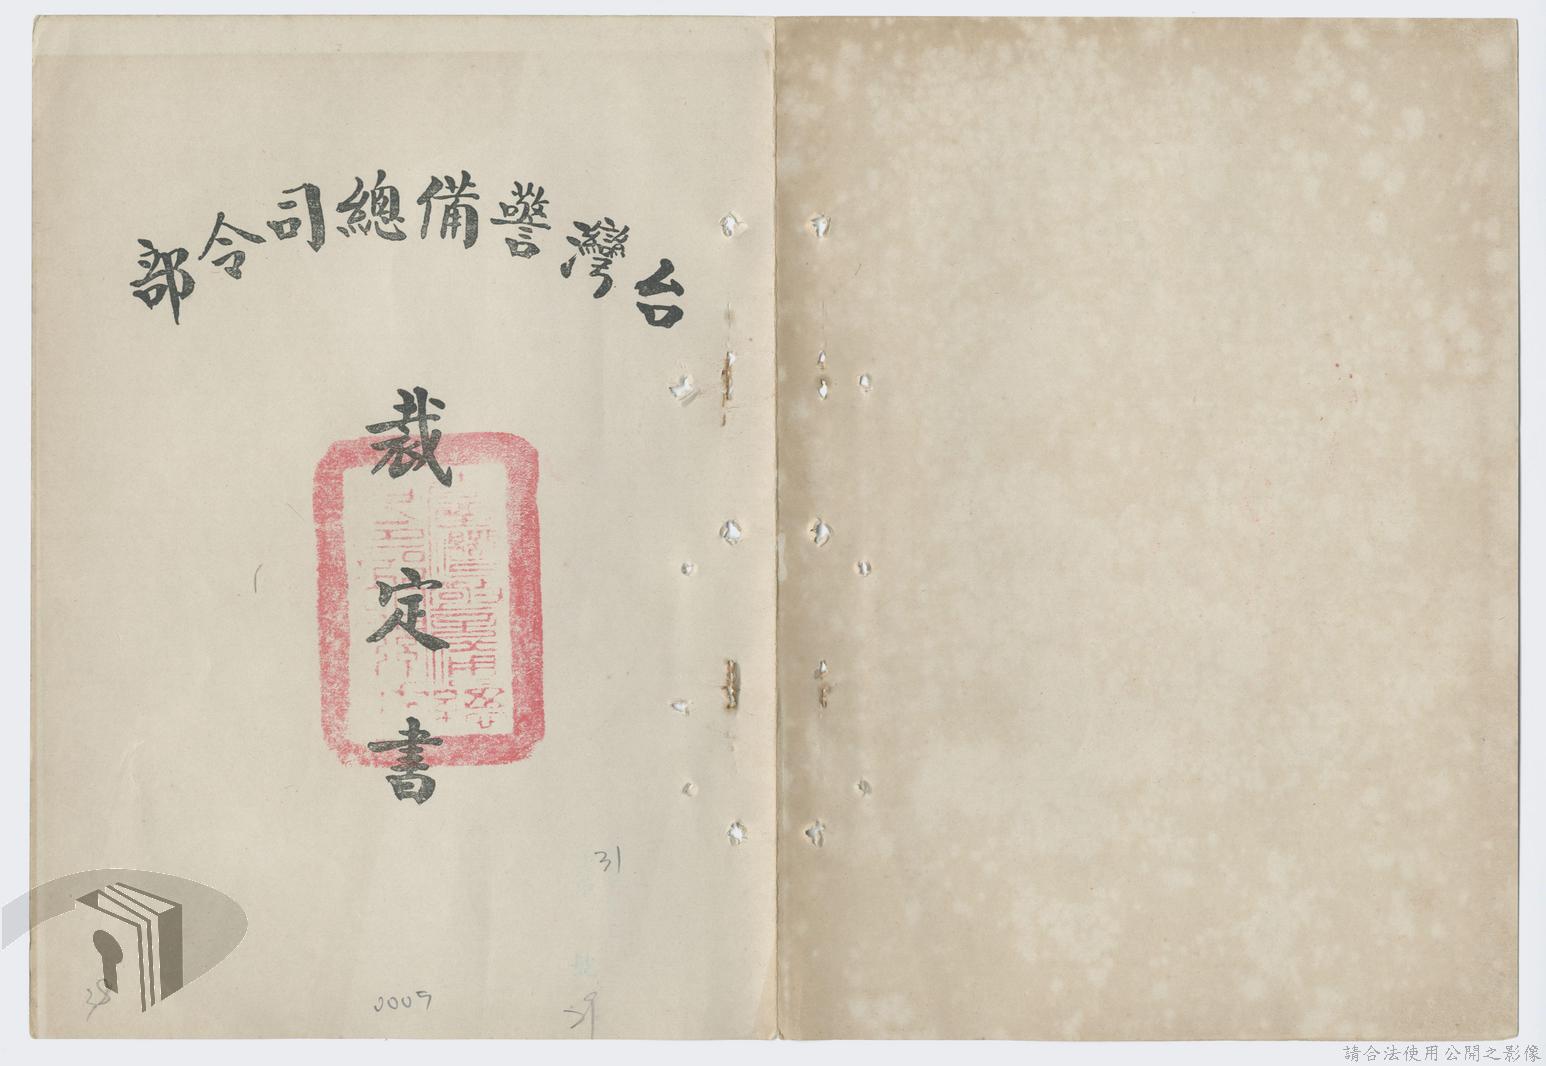 台灣警備總司令部
裁定書
31
38
0009
39
請合法使用公開之影像